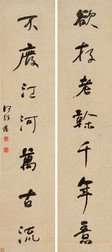 欲存老榦千年意
不廢江河萬古流